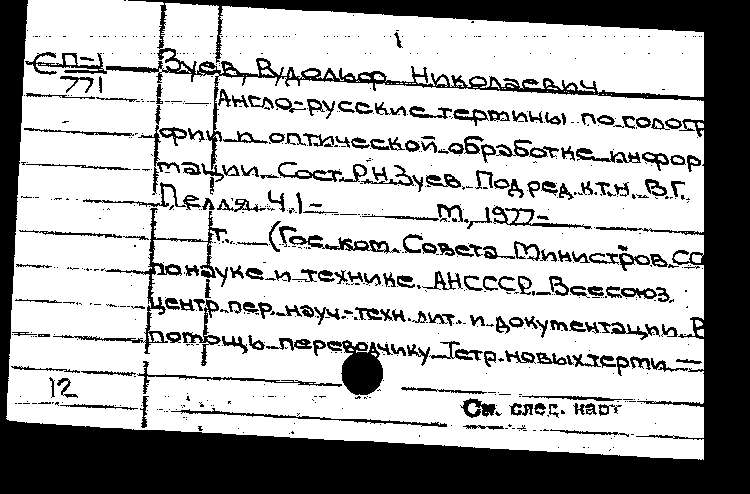 1
СП-1
771
Зуев, Рудольф Николаевич.
Англо-русские термины по гологр
фии и оптической обработке инфор
мации. Сост. Р.Н.Зуев. Под ред. к.т.н. В.Г.
Пелля. Ч.1- М., 1977-
т. (Гос. ком. Совета Министров СС
по науке и технике. АН СССР. Всесоюз.
центр пер. науч.-техн. лит. и документации. В
помощь переводчику. Тетр. новых терми —
12
См. след. карт